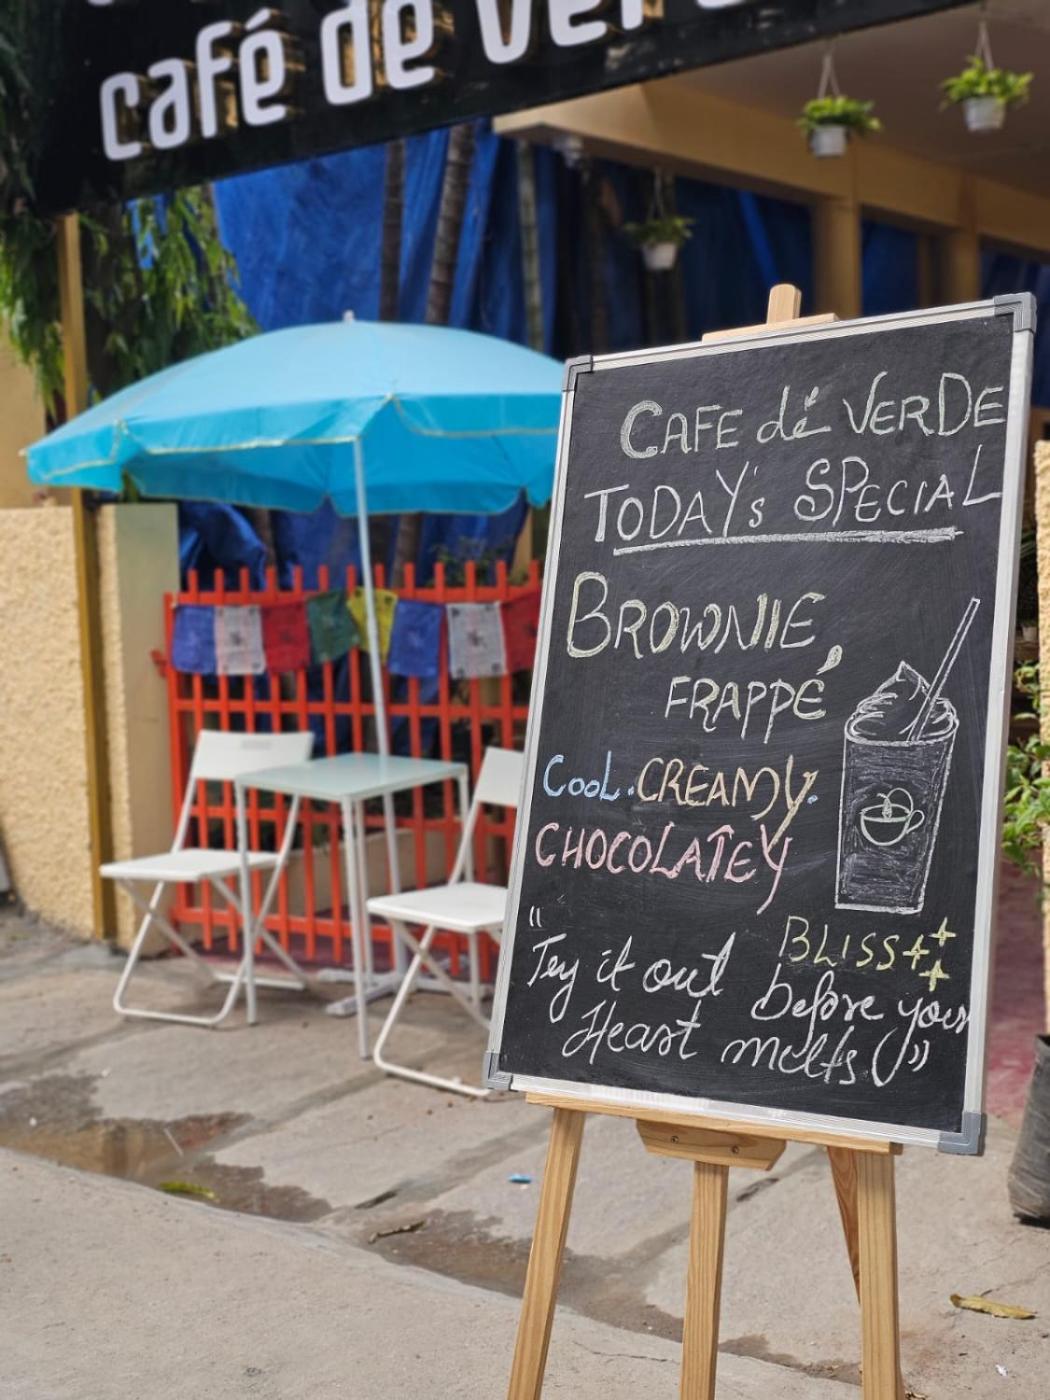 café de ver
CAFE dé VERDE
TODAY's SPECIAL
BROWNIE,
FRAPPÉ
COOL.CREAMY.
CHOCOLATEY
BLISS
"Try it out before your
Heart melts"